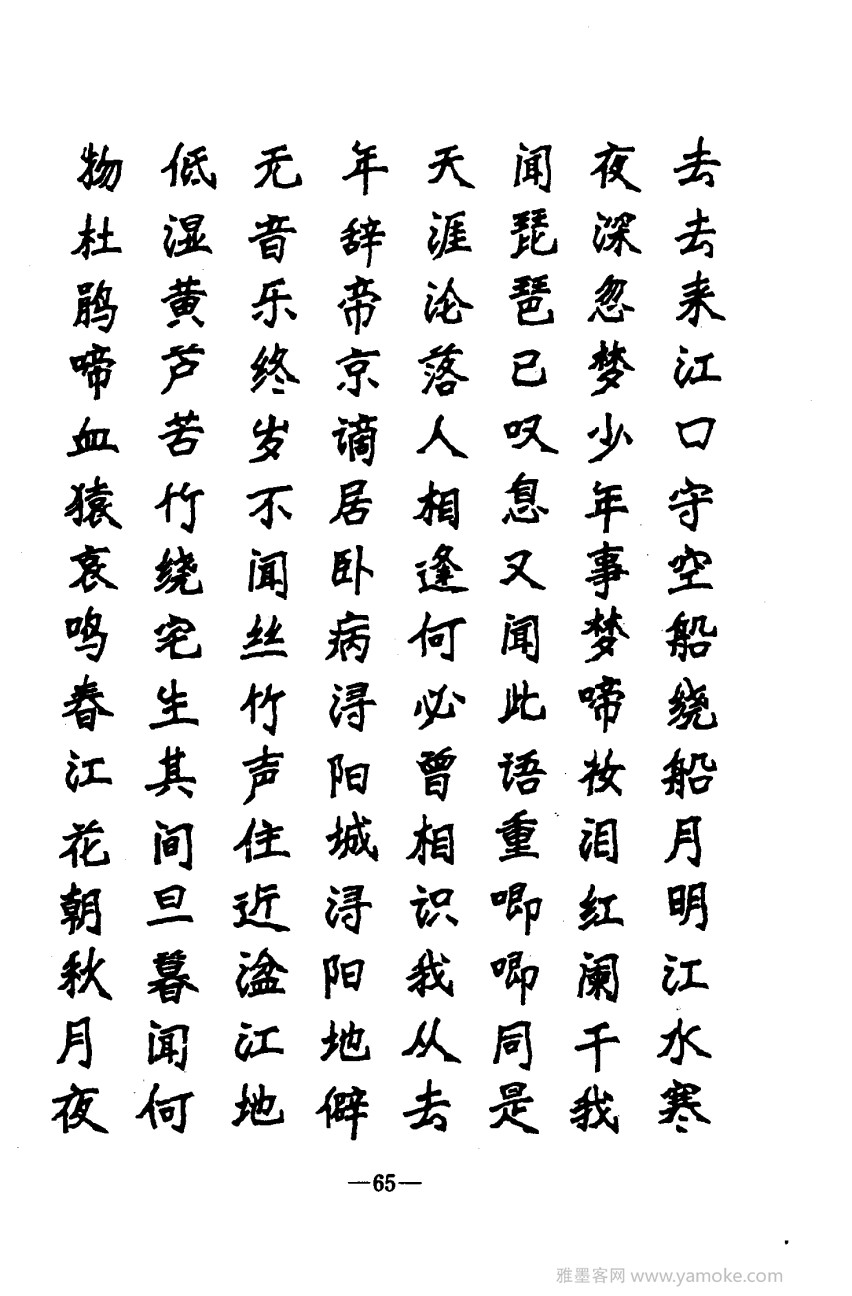 去去来江口守空船绕船月明江水寒
夜深忽梦少年事梦啼妆泪红阑干我
闻琵琶已叹息又闻此语重唧唧同是
天涯沦落人相逢何必曾相识我从去
年辞帝京谪居卧病浔阳城浔阳地僻
无音乐终岁不闻丝竹声住近湓江地
低湿黄芦苦竹绕宅生其间旦暮闻何
物杜鹃啼血猿哀鸣春江花朝秋月夜
—65—
雅墨客网 www.yamoke.com